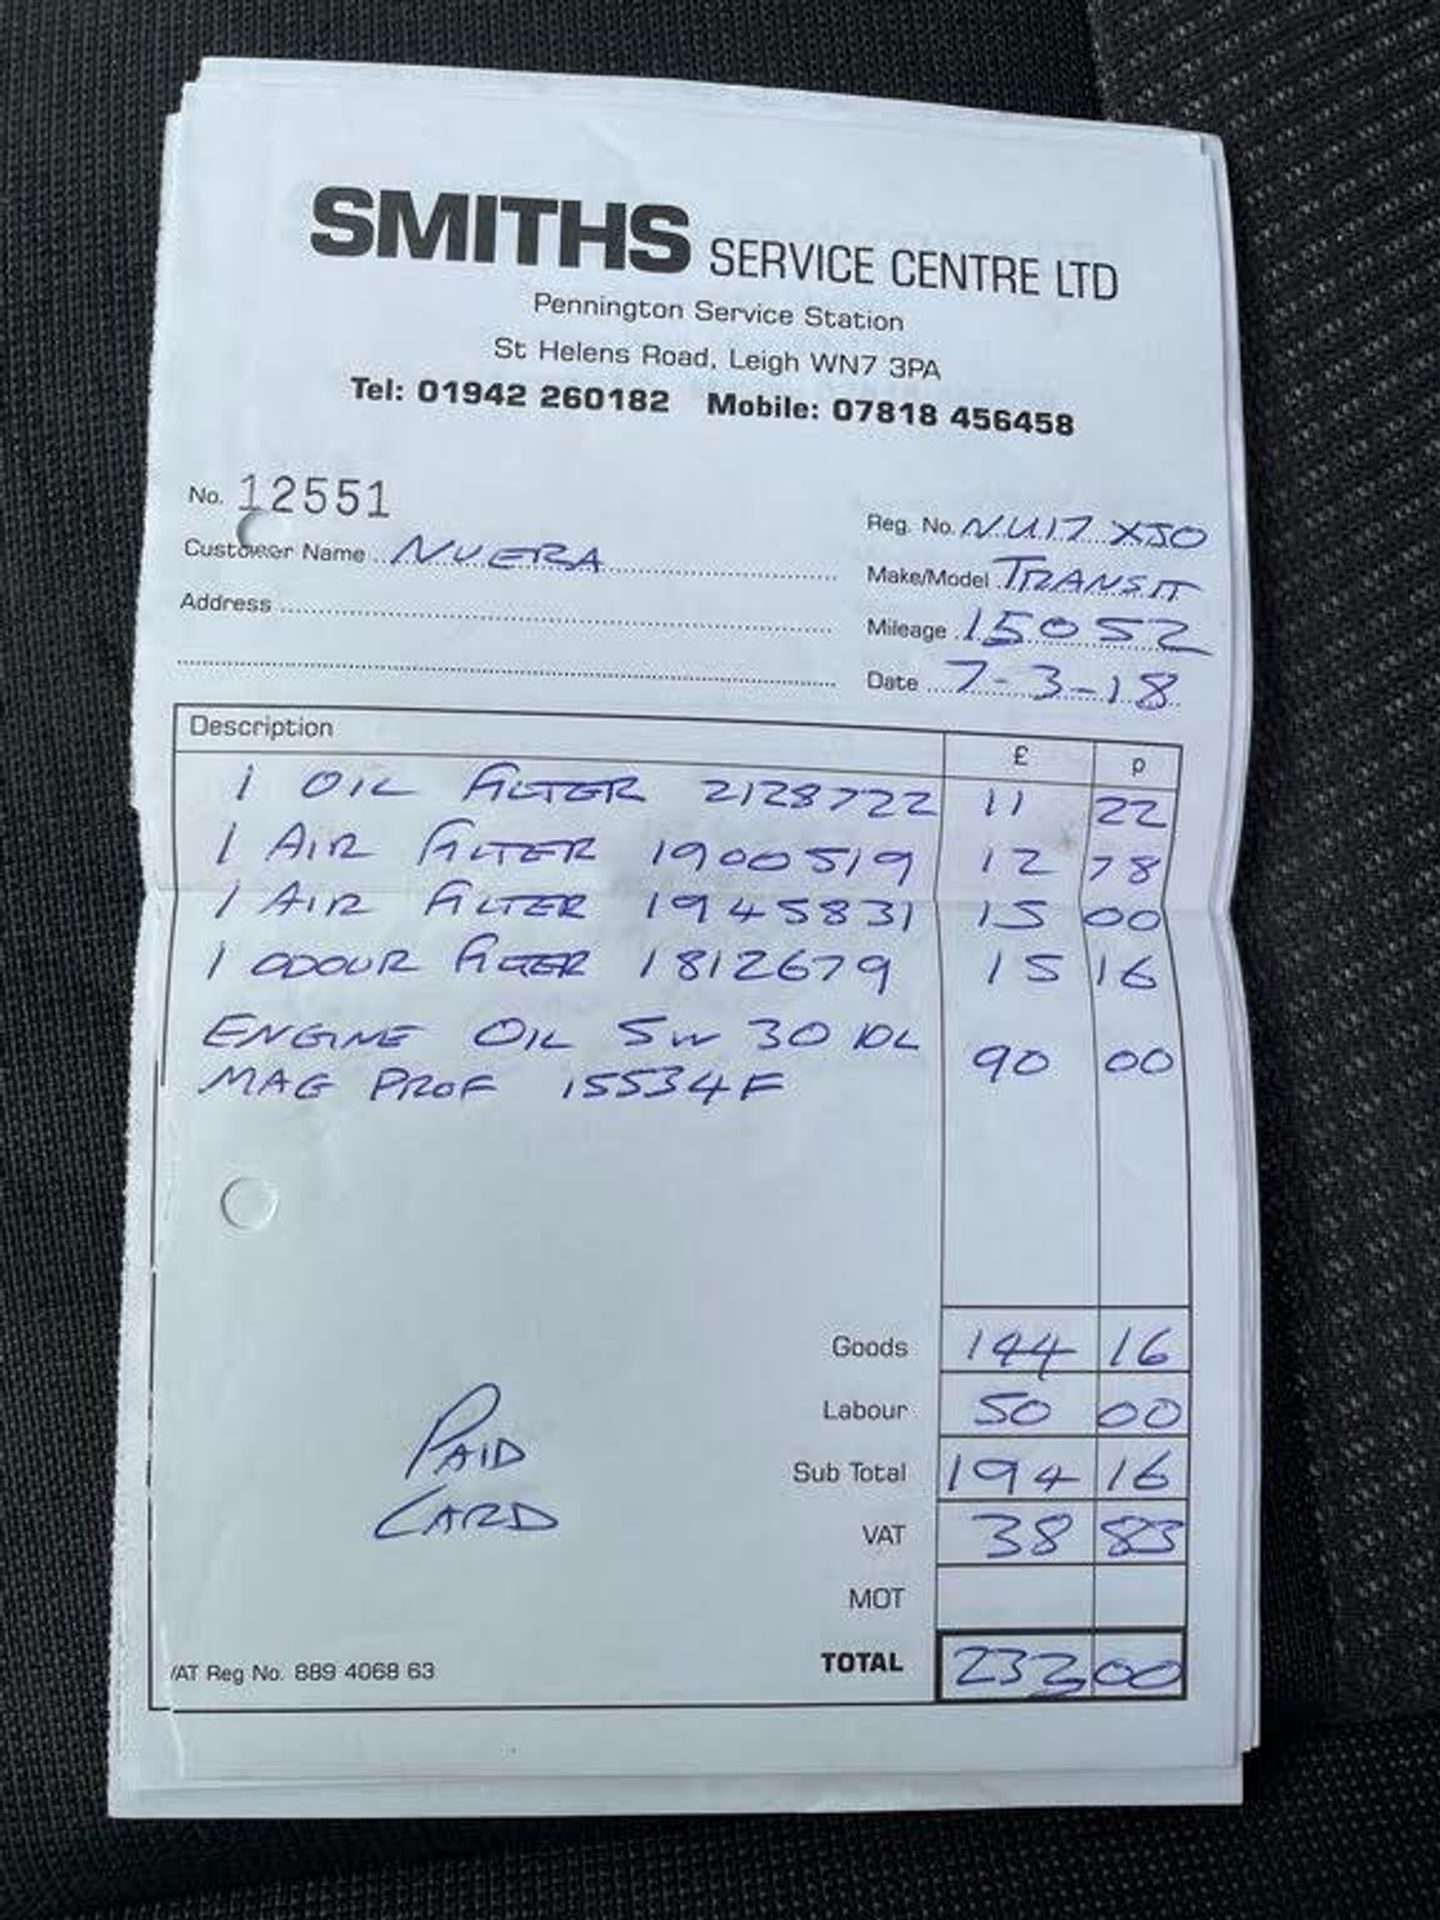 SMITHS SERVICE CENTRE LTD
Pennington Service Station
St Helens Road, Leigh WN7 3PA
Tel: 01942 260182 Mobile: 07818 456458
No. 12551
Reg. No. NU17 XJO
Customer Name NUERA
Make/Model TRANSIT
Address
Mileage 15052
Date 7-3-18
Description £ p
1 OIL FILTER 2128722 11 22
1 AIR FILTER 1900519 12 78
1 AIR FILTER 1945831 15 00
1 ODOUR FILTER 1812679 15 16
ENGINE OIL 5W 30 10L
MAG PROF 15534F 90 00
Goods 144 16
Labour 50 00
PAID
CARD
Sub Total 194 16
VAT 38 83
MOT
VAT Reg No. 889 4068 63 TOTAL 233 00